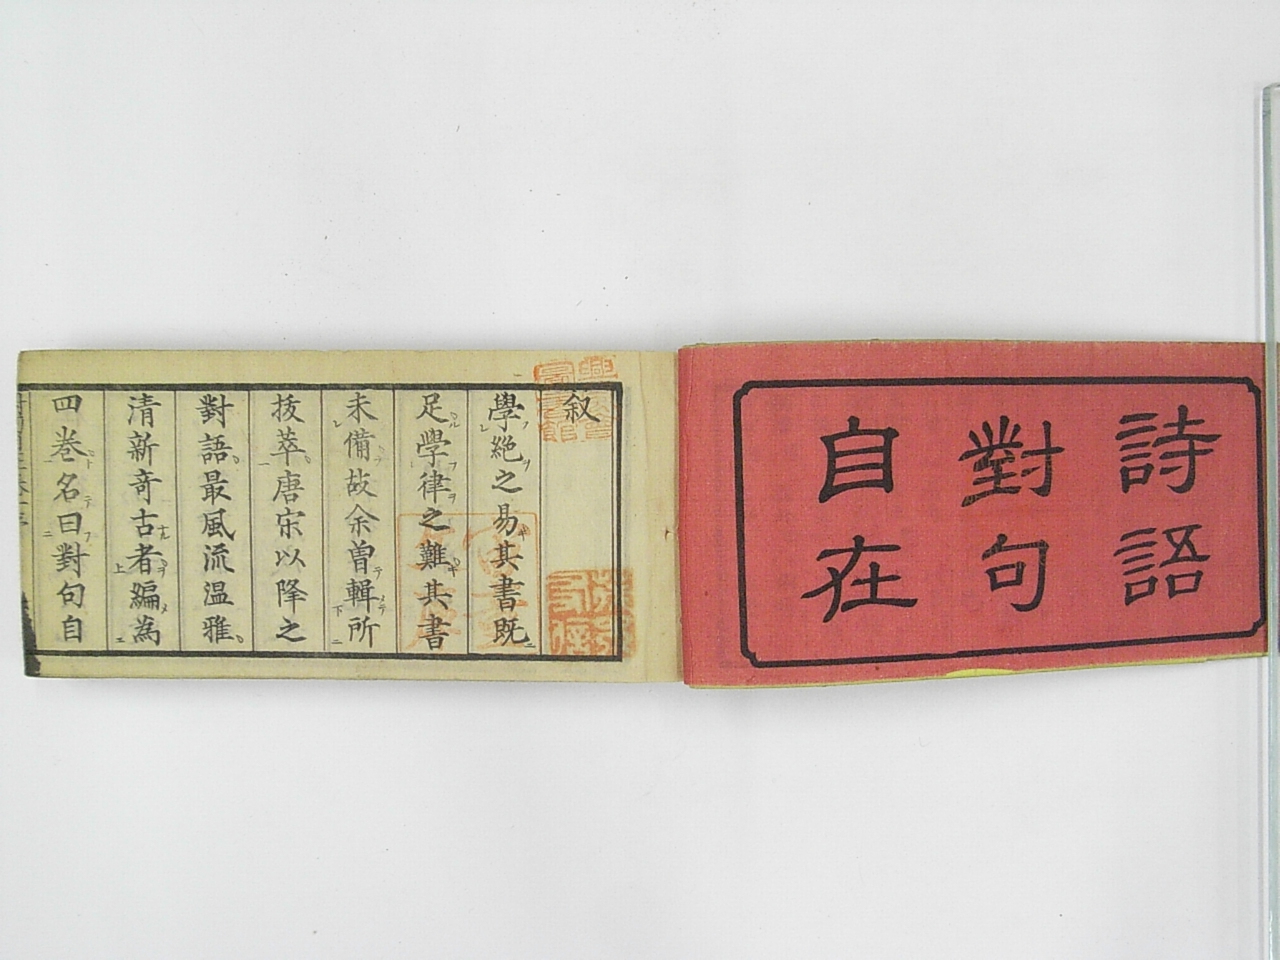 詩語
對句
自在
叙
學絶之易其書既
足學律之難其書
未備故余曽輯所
抜萃唐宋以降之
對語最風流温雅
清新竒古者編為
四巻名曰對句自